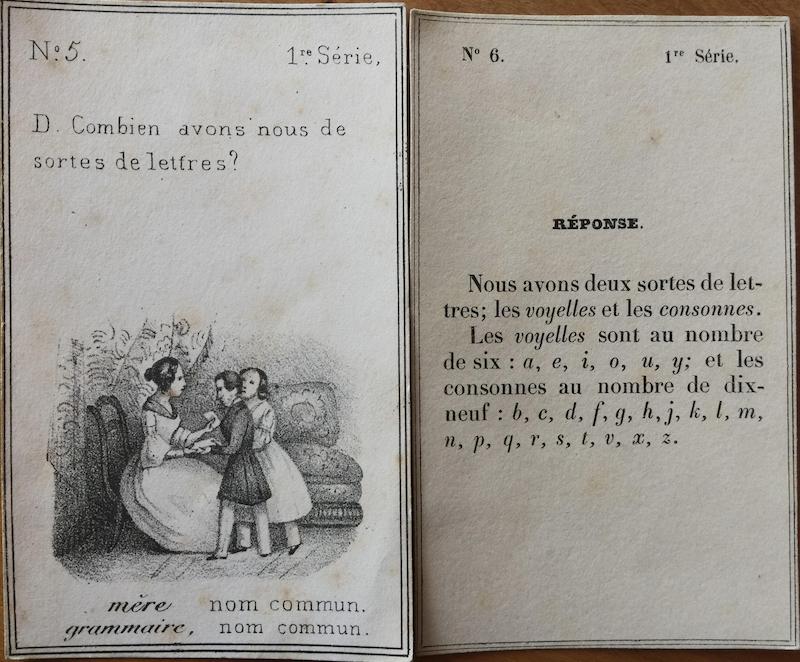 Nº 5. 1re Série,
D. Combien avons nous de
sortes de lettres?
mère nom commun.
grammaire, nom commun.
Nº 6. 1re Série.
RÉPONSE.
Nous avons deux sortes de let-
tres; les voyelles et les consonnes.
Les voyelles sont au nombre
de six : a, e, i, o, u, y; et les
consonnes au nombre de dix-
neuf : b, c, d, f, g, h, j, k, l, m,
n, p, q, r, s, t, v, x, z.